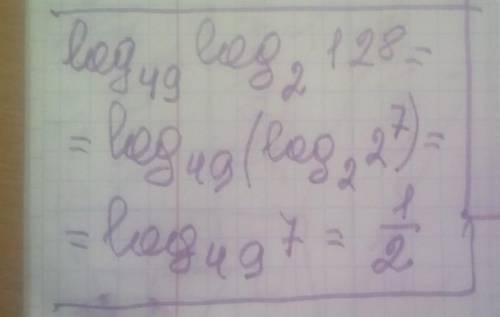 log₄₉ log₂ 128 =
= log₄₉ (log₂ 2⁷) =
= log₄₉ 7 = 1/2